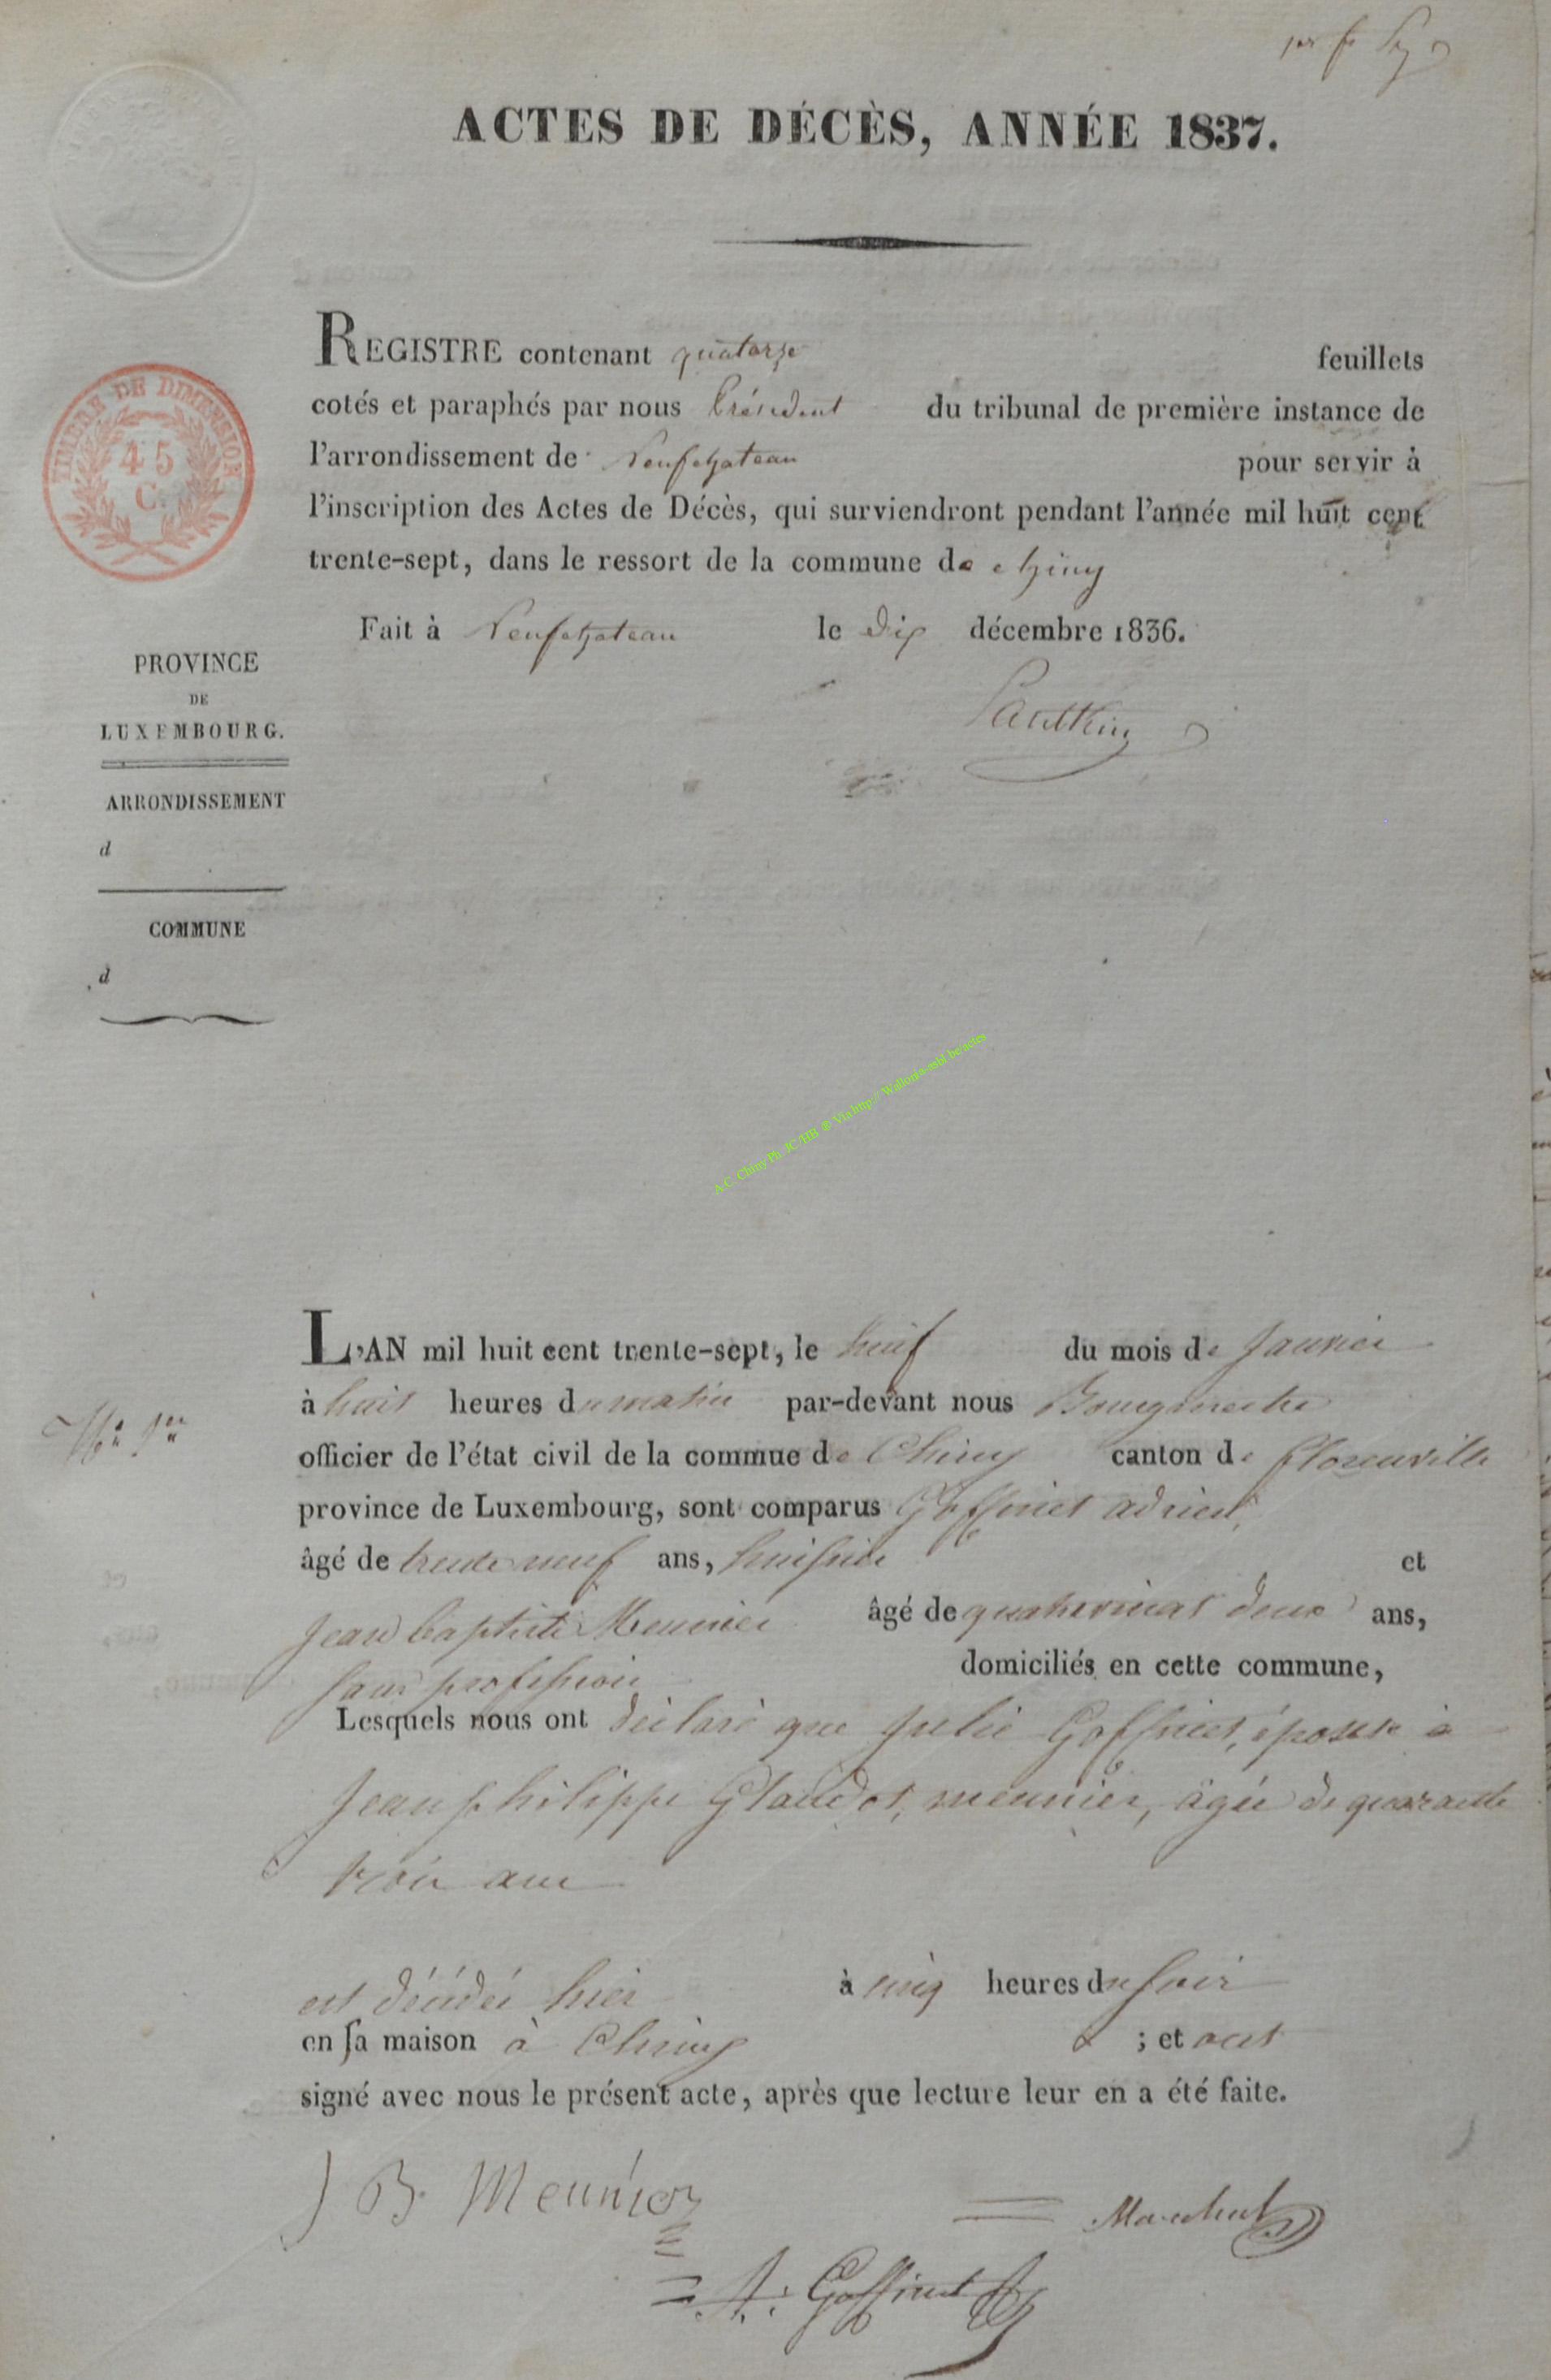 ACTES DE DÉCÈS, ANNÉE 1837.
REGISTRE contenant quatorze feuillets
cotés et paraphés par nous Président du tribunal de première instance de
l'arrondissement de Neufchateau pour servir à
l'inscription des Actes de Décès, qui surviendront pendant l'année mil huit cent
trente-sept, dans le ressort de la commune de Chiny
Fait à Neufchateau le dix décembre 1836.
TIMBRE DE DIMENSION
45
C.
PROVINCE
DE
LUXEMBOURG.
ARRONDISSEMENT
d
COMMUNE
d
A.C. Chiny Ph. JC/HB ® Via http:// Wallonia-asbl.be/actes
N° 1er
L'AN mil huit cent trente-sept, le du mois de Janvier
à huit heures du matin par-devant nous Bourgmestre
officier de l'état civil de la commue de Chiny canton de florenville
province de Luxembourg, sont comparus Goffinet adrien,
âgé de trente neuf ans, huissier et
Jean baptiste Meunier âgé de quatrevingt deux ans,
sans profession domiciliés en cette commune,
Lesquels nous ont déclaré que Julie Goffinet, épouse à
Jean philippe Claudot, meunier, âgée de quarante
trois ans
est décédée hier à cinq heures du soir
en sa maison à Chiny ; et ont
signé avec nous le présent acte, après que lecture leur en a été faite.
J B. Meunier
Marchal
A. Goffinet